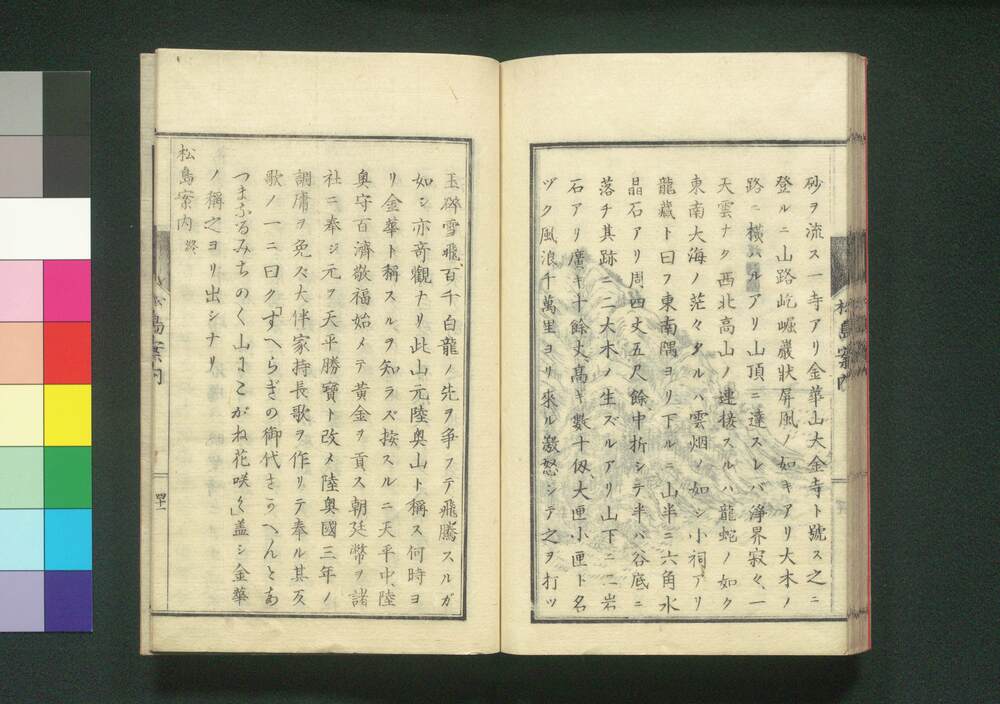 砂ヲ流ス一寺アリ金華山大金寺ト號ス之ニ
登ルニ山路屹崛巖狀屏風ノ如キアリ大木ノ
路ニ横ハルアリ山頂ニ達スレバ淨界寂々、一
天雲ナク西北高山ノ連接スルハ龍蛇ノ如ク
東南大海ノ茫々タルハ雲烟ノ如シ小祠アリ
龍藏ト曰フ東南隅ヨリ下ルニ山半ニ六角水
晶石アリ周四丈五尺餘中折シテ半バ谷底ニ
落チ其跡ニ二大木ノ生ズルアリ山下ニ二岩
石アリ廣キ十餘丈、高キ數十仭大匣小匣ト名
ヅク風浪千萬里ヨリ來ル激怒シテ之ヲ打ツ
松島案内
玉碎雪飛、百千白龍ノ先ヲ爭フテ飛騰スルガ
如シ亦奇觀ナリ此山元陸奥山ト稱ス何時ヨ
リ金華ト稱スルヲ知ラズ按スルニ天平中、陸
奥守百濟敬福始メテ黄金ヲ貢ス朝廷幣ヲ諸
社ニ奉ジ元ヲ天平勝寶ト改メ陸奥國三年ノ
調庸ヲ免ズ大伴家持長歌ヲ作リテ奉ル其反
歌ノ一ニ曰ク「すへらぎの御代さかへんとあ
つまふるみちのく山にこがね花咲く」盖シ金華
ノ稱之ヨリ出シナリ
松島案内 終
松島案内